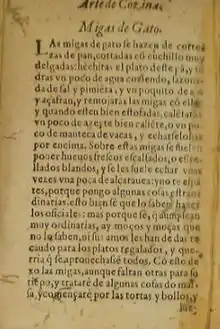 Arte de Cozina.
Migas de Gato.
LAs migas de gato se hazen de corte
zas de pan, cortadas cō cuchillo muy
delgadas: hechiras el plato deste pā, y tē
dras vn poco de agua coziendo, sazona
da de sal y pimiēta, y vn poquito de a
jo y açafran, y remojaras las migas cō ello
y quando esten bien estofadas, calētaras
vn poco de azeyte bien caliēte, o vn po
co de manteca de vacas, y echaselo has
por encima. Sobre estas migas se suelen
poner hueuos frescos escalfados, o estre
llados blandos, y se les suele echar vnas
vezes vna poca de alcarauea: y no te espā
tes, porque pongo algunas cosas, q̄ son tra
dinarias: esto biē se que lo saben hazer
los oficiales: mas porque se, q̄ aunq̄ sean
muy ordinarias, ay moços y moças que
no lo saben, ni sus amos les han de dar re
caudo para los platos regalados, y que
rria q̄ se aprouechasē todos. Cō esto de
xo las migas, aunque faltan otras para su
tiēpo, y trataré de algunas cosas de mas
sa, y començaré por las tortas y bollos, y